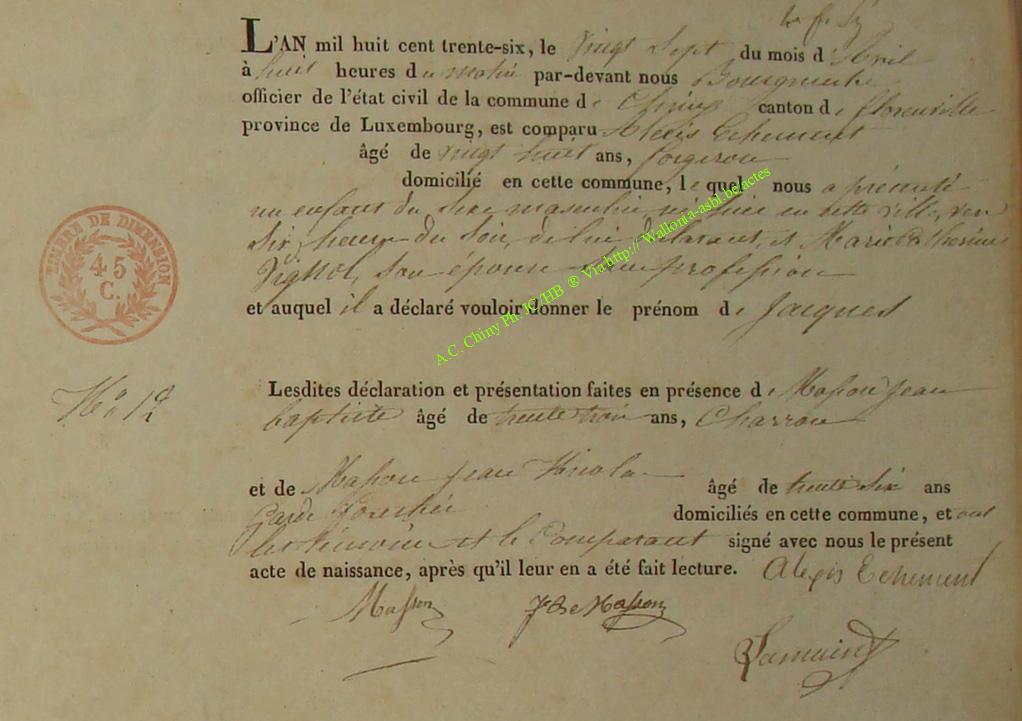 L'AN mil huit cent trente-six, le vingt sept du mois d'Avril
à huit heures du matin par-devant nous Bourgmestre
officier de l'état civil de la commune de Chiny canton de florenville
province de Luxembourg, est comparu Alexis Echement
âgé de vingt huit ans, forgeron
domicilié en cette commune, lequel nous a présenté
un enfant du sexe masculin né hier en cette ville, vers
six heures du soir, de lui déclarant, et Marie
son épouse sans profession
et auquel il a déclaré vouloir donner le prénom de Jacques
TIMBRE DE DIMENSION
45
C.
No 12
Lesdites déclaration et présentation faites en présence de Masson jean
baptiste âgé de trente trois ans, Charron
et de Masson jean Nicolas âgé de trente six ans
Garde forestier domiciliés en cette commune, et ont
les témoins et le Comparant signé avec nous le présent
acte de naissance, après qu'il leur en a été fait lecture. Alexis Echement
Masson JB Masson
A.C. Chiny Ph. JG/HB ® Via http:// Wallonia-asbl.be/actes